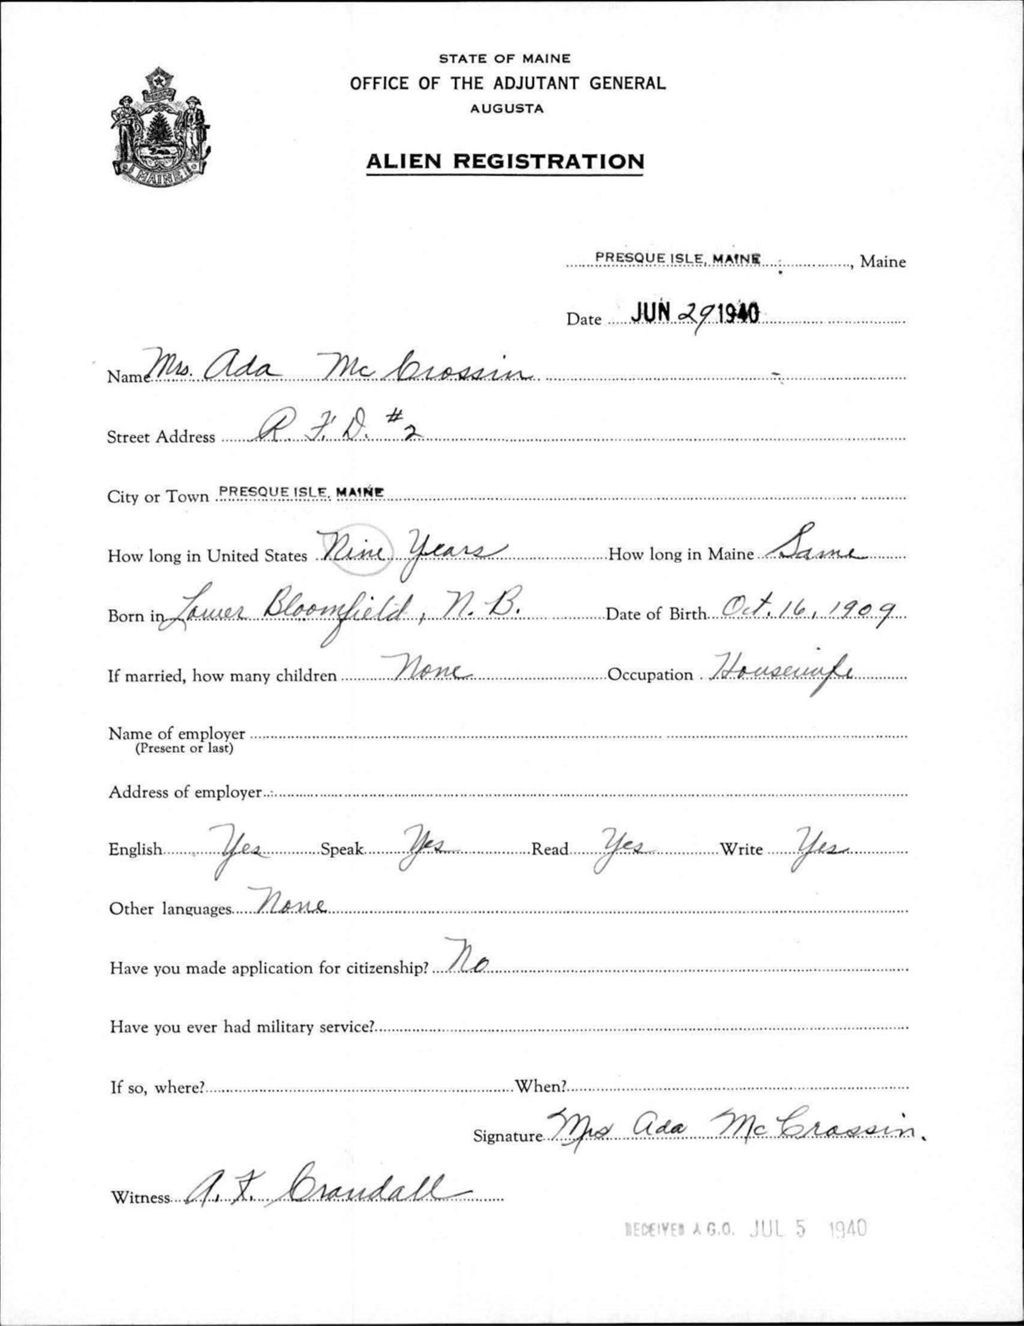 STATE OF MAINE
OFFICE OF THE ADJUTANT GENERAL
AUGUSTA
ALIEN REGISTRATION
MAINE
PRESQUE ISLE, MAINE, Maine
Date JUN 29 1940
Name Mrs. Ada McCrossin
Street Address R. F. D. #2
City or Town PRESQUE ISLE, MAINE
How long in United States Nine Years How long in Maine Same
Born in Lower Bloomfield, N. B. Date of Birth Oct. 16, 1909
If married, how many children None Occupation Housewife
Name of employer
(Present or last)
Address of employer
English Yes Speak Yes Read Yes Write Yes
Other languages None
Have you made application for citizenship? No
Have you ever had military service?
If so, where? When?
Signature Mrs Ada McCrossin.
Witness A. F. Crandall
RECEIVED A.G.O. JUL 5 1940